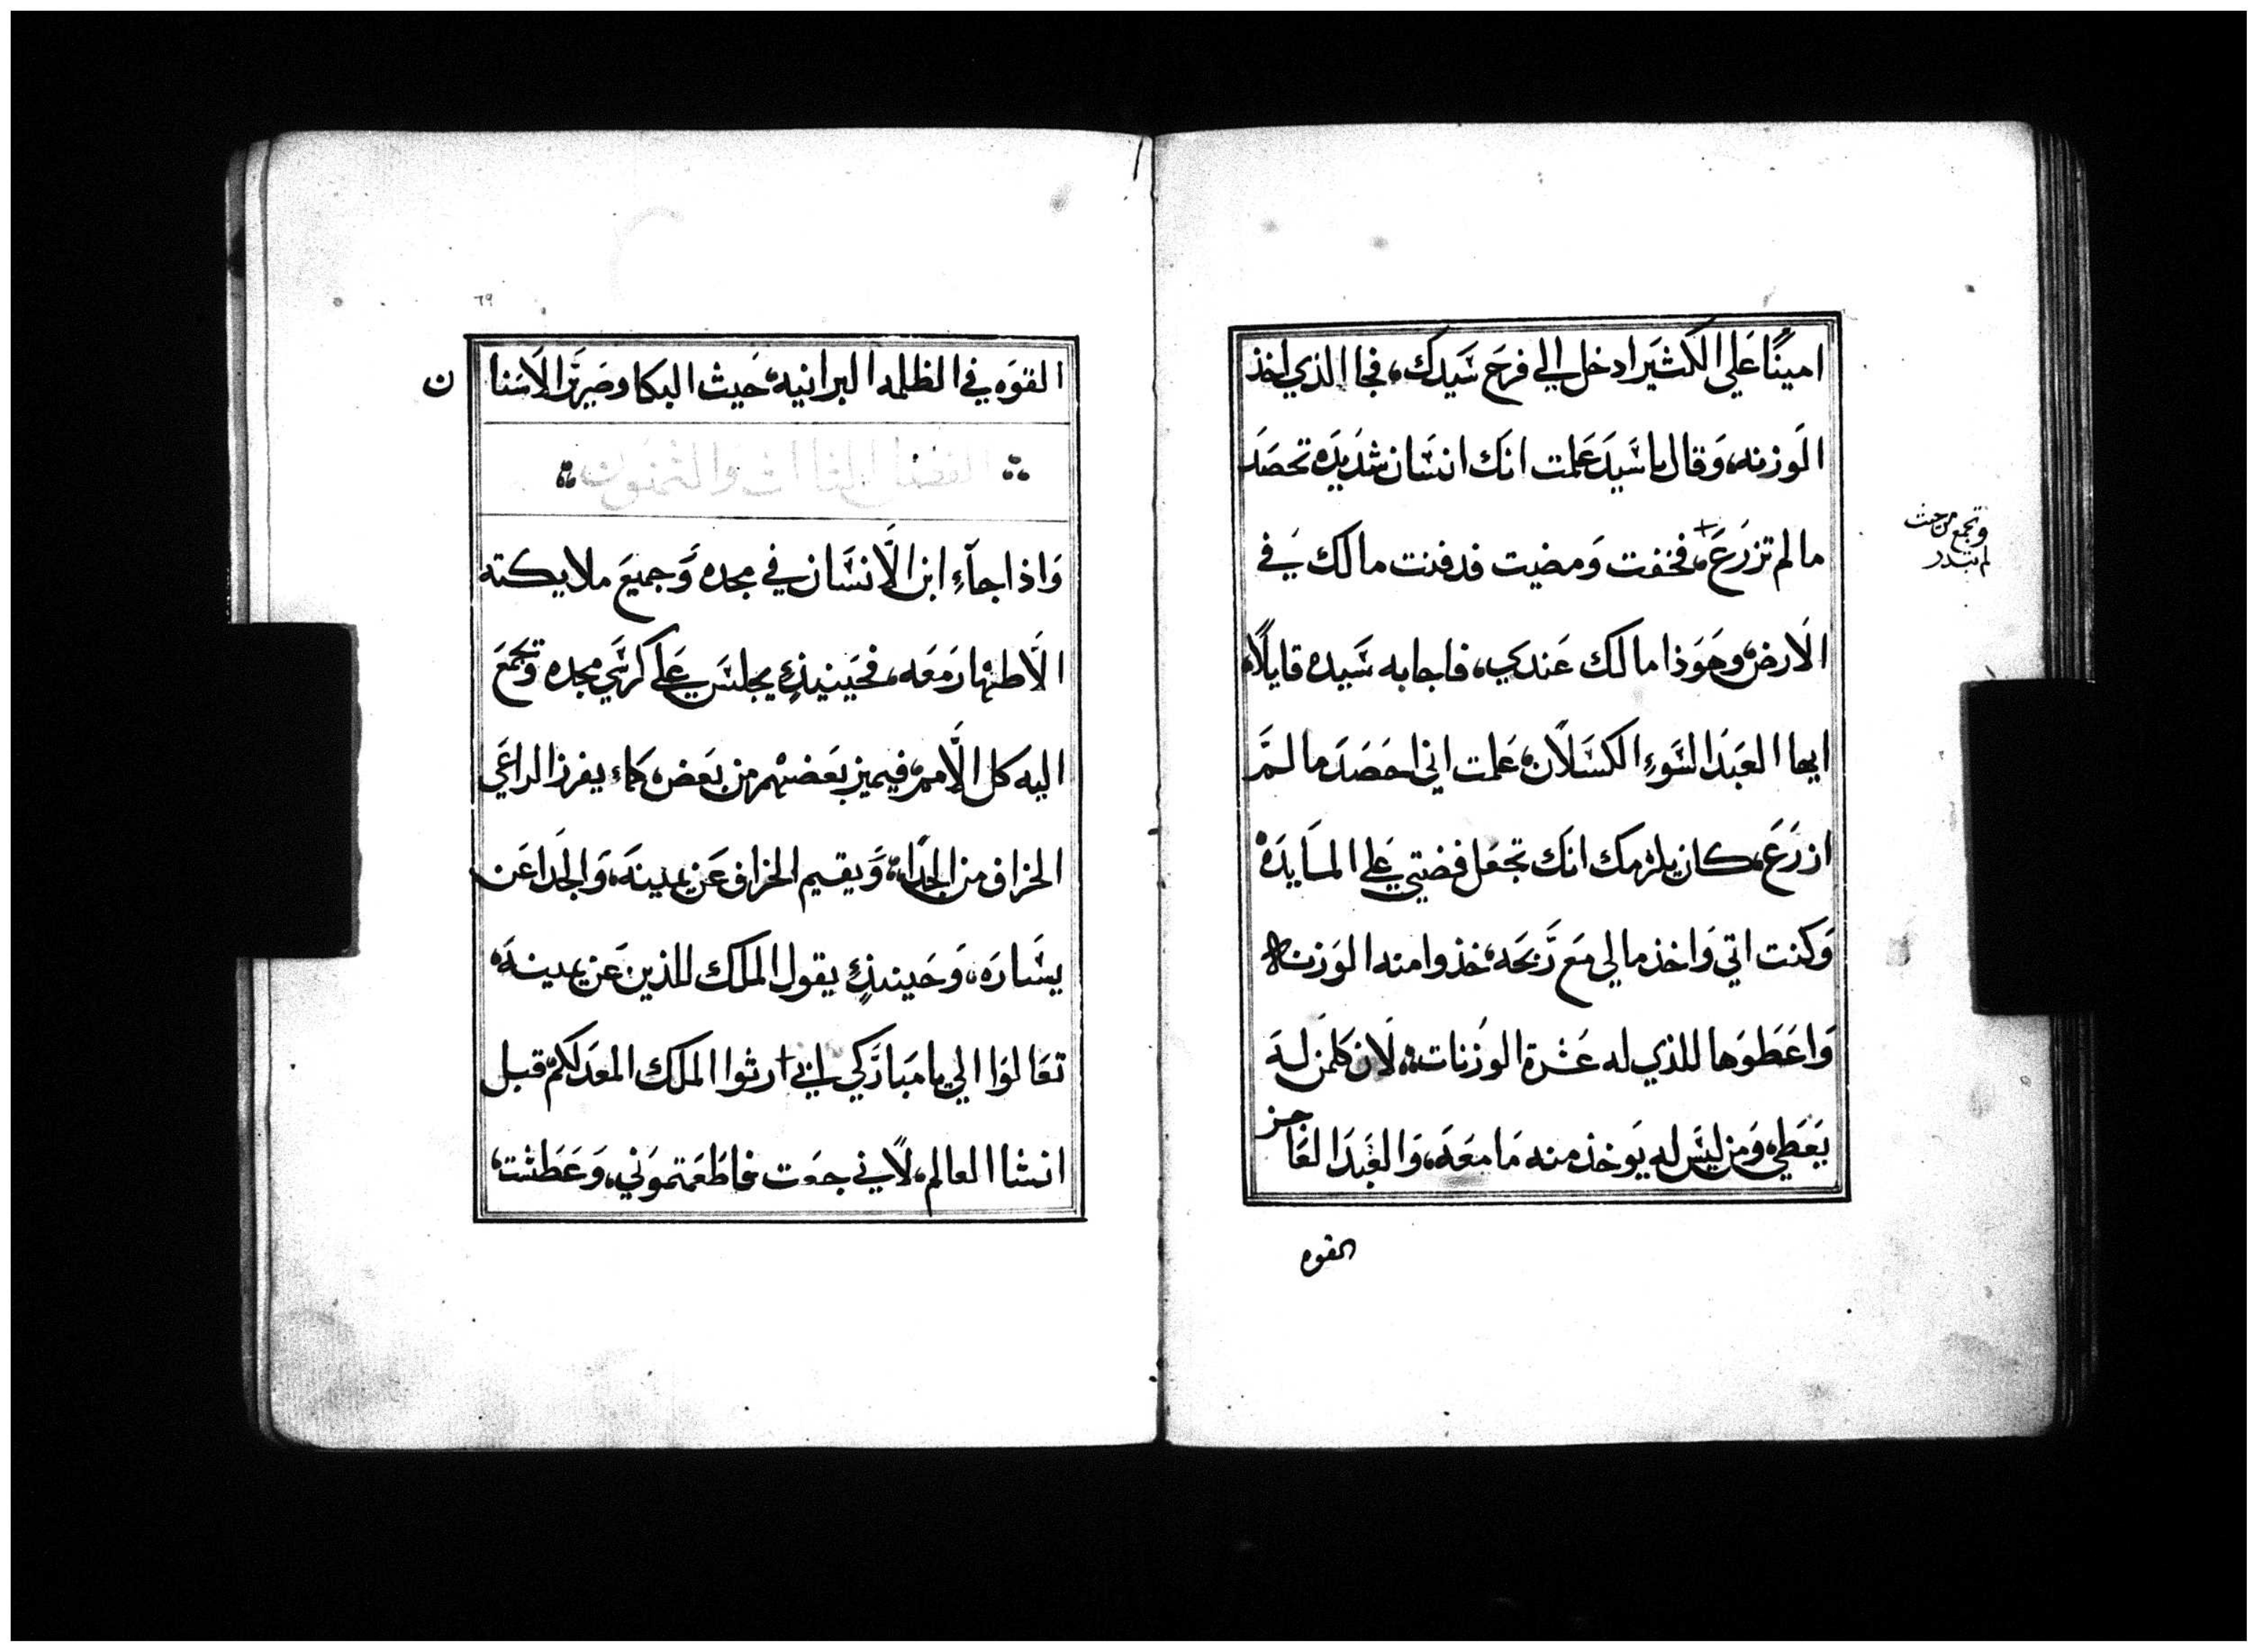 امينًا عَلي الكثيَر ادخل الي فرحَ سَيدك، فجا الذي اخذ
الَوزنه، وَقال يا سَيدَ عَلمت انَك انسَان شدَيدَه تحصَد
ما لم تزرَعَ، فخفت وَمضيت فدفنت مالك يَفي
الَارض، وهَوَذا مالَك عَندكي، فاجابه سَيده قايلًا،
ايها العَبدَ السَوءِ الكسَلَان، عَلمت اني احَصَدَ ما لمَ
ازرَعَ، كان يلزمك انَك تجعَل فضتي عَلي المايدَه
وَكنت اتي وَاخذ مالي مَعَ رَبحَه، خذوا منه الوَزنه
وَاعَطوَها للذي له عَشرة الوزنات، لَان كلمَن لهَ
يعَطي، وَمن ليَسَ له يَوخذ منه مَا مَعَه، وَالعَبدَ العَاجز
وتجمع من حيث
لم تبدر
القوه
٦٩
القوَه في الظلمه البرانيه، حَيث البكا وصَريَر الاسَنان
الفصل الثالث والثمنون
وَاذا جآءِ ابن الَانسَان في مجده وَجميعَ ملايكته
الَاطهار مَعَه، فحَينيذٍ يجلسَ عَلَي كرسَي مجده وتجمَعَ
اليه كل الَامم، فيميز بعَضهم من بعَض، كماء يفرز الراعَي
الخراف من الجدَاء، وَيقيم الخراف عَن يمينهَ، وَالجدَا عَن
يسَارَه، وَحَينذٍ يقول الملَك للذين عَن يمينهَ،
تعَالوَا الي يا مَبارَكي ابي ارثوا الملَك المعَد لكمَ قبل
انشا العالم، لَاني جعَت فاطَعَمتموَني، وَعَطشت،